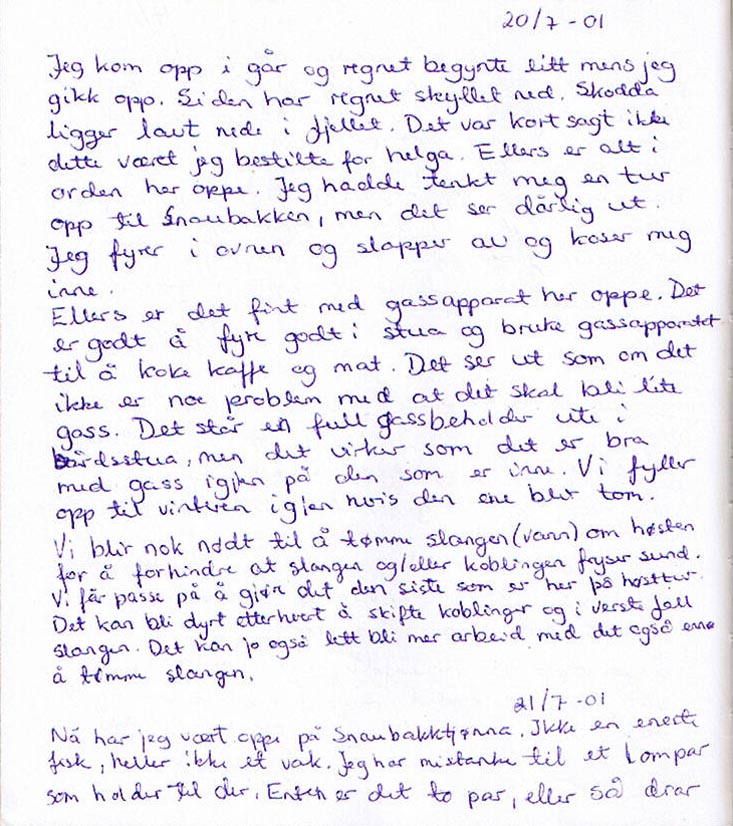 20/7-01
Jeg kom opp i går og regnet begynte litt mens jeg
gikk opp. Siden har regnet skyllet ned. Skodda
ligger lavt nede i fjellet. Det var kort sagt ikke
dette været jeg bestilte for helga. Ellers er alt i
orden her oppe. Jeg hadde tenkt meg en tur
opp til Snaubakken, men det ser dårlig ut.
Jeg fyrer i ovnen og slapper av og koser meg
inne.
Ellers er det fint med gassapparat her oppe. Det
er godt å fyre godt i stua og bruke gassapparatet
til å koke kaffe og mat. Det ser ut som om det
ikke er noe problem med at det skal bli lite
gass. Det står en full gassbeholder ute i
bårdsstua, men det virker som det er bra
med gass igjen på den som er inne. Vi fyller
opp til vinteren igjen hvis den ene blir tom.
Vi blir nok nødt til å tømme slangen (vann) om høsten
for å forhindre at slangen og/eller koblingen fryser sund.
Vi får passe på å gjøre det den siste som er her på høsttur.
Det kan bli dyrt etterhvert å skifte koblinger og i verste fall
slangen. Det kan jo også lett bli mer arbeid med det også enn
å tømme slangen.
21/7-01
Nå har jeg vært oppe på Snaubakktjønna. Ikke en eneste
fisk, heller ikke et vak. Jeg har mistanke til et Lompar
som holder til der. Enten er det to par, eller så drar